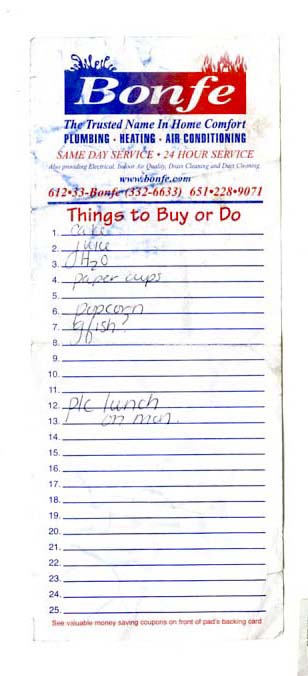 Bonfe
The Trusted Name In Home Comfort
PLUMBING • HEATING • AIR CONDITIONING
SAME DAY SERVICE • 24 HOUR SERVICE
Also providing Electrical, Indoor Air Quality, Drain Cleaning and Duct Cleaning
www.bonfe.com
612•33-Bonfe (332-6633) 651•228•9071
Things to Buy or Do
1. cake
2. juice
3. H2O
4. paper cups
5.
6. popcorn
7. gfish?
8.
9.
10.
11.
12. p/c lunch
13. on mon.
14.
15.
16.
17.
18.
19.
20.
21.
22.
23.
24.
25.
See valuable money saving coupons on front of pad's backing card